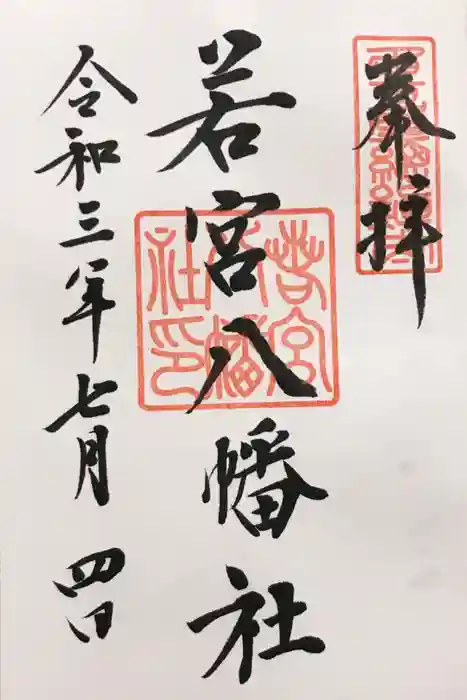 奉拝
若宮八幡社
令和三年七月四日
若宮八幡社印